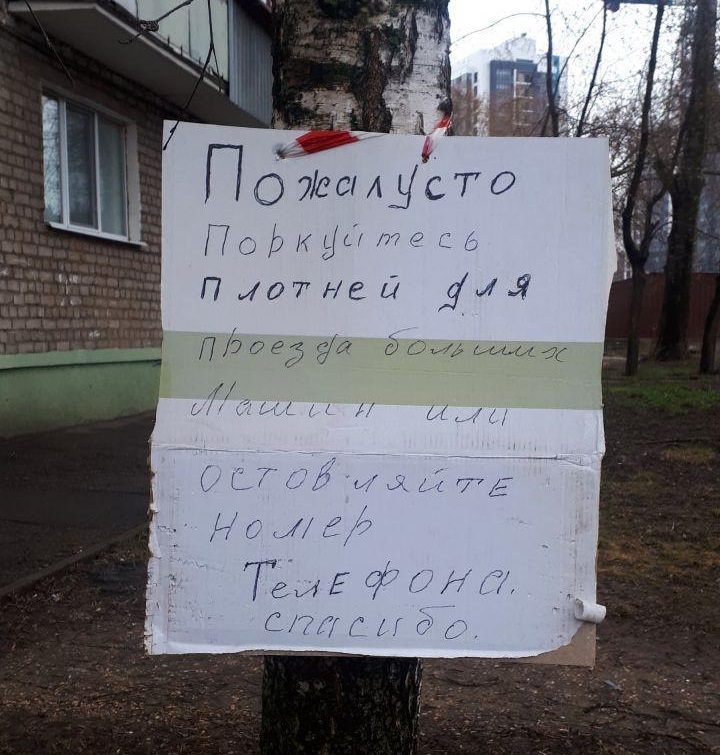 Пожалусто
Поркуйтесь
плотней для
проезда больших
Машин или
остовляйте
номер
Телефона.
спасибо.